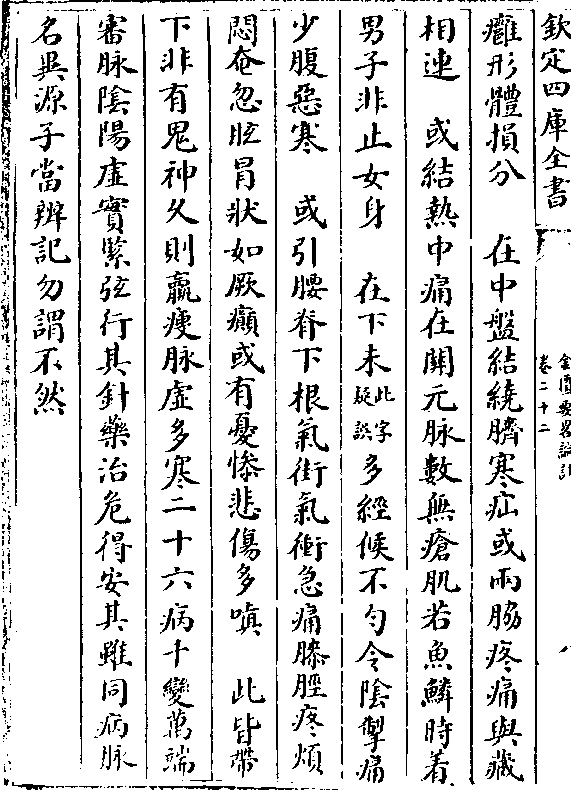 欽定四庫全書
金匱要畧論註
卷二十二
八
癰形體損分　在中盤結繞臍寒疝或兩脇疼痛與藏
相連　或結熱中痛在關元脉數無瘡肌若魚鱗時着
男子非止女身　在下未此字疑誤多經候不勻令陰掣痛
少腹惡寒　或引腰脊下根氣街氣衝急痛膝脛疼煩
悶奄忽眩冒狀如厥癲或有憂慘悲傷多嗔　此皆帶
下非有鬼神久則羸瘦脉虛多寒三十六病十變萬端
審脉陰陽虛實緊弦行其針藥治危得安其雖同病脉
名異源子當辨記勿謂不然